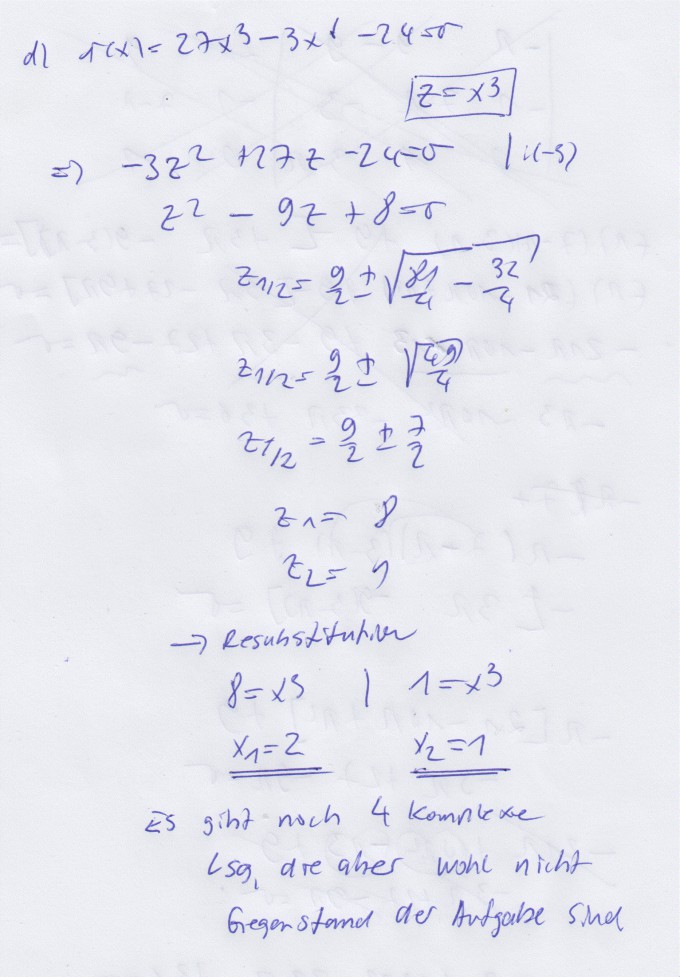 d) r(x) = 27x³ - 3x⁶ - 24 = 0
z = x³
=> -3z² + 27z - 24 = 0 | :(-3)
z² - 9z + 8 = 0
z1/2 = 9/2 ± √(81/4 - 32/4)
z1/2 = 9/2 ± √(49/4)
z1/2 = 9/2 ± 7/2
z1 = 8
z2 = 1
→ Resubstitution
8 = x³ | 1 = x³
x1 = 2 x2 = 1
Es gibt noch 4 Komplexe
Lsg, die aber wohl nicht
Gegenstand der Aufgabe sind